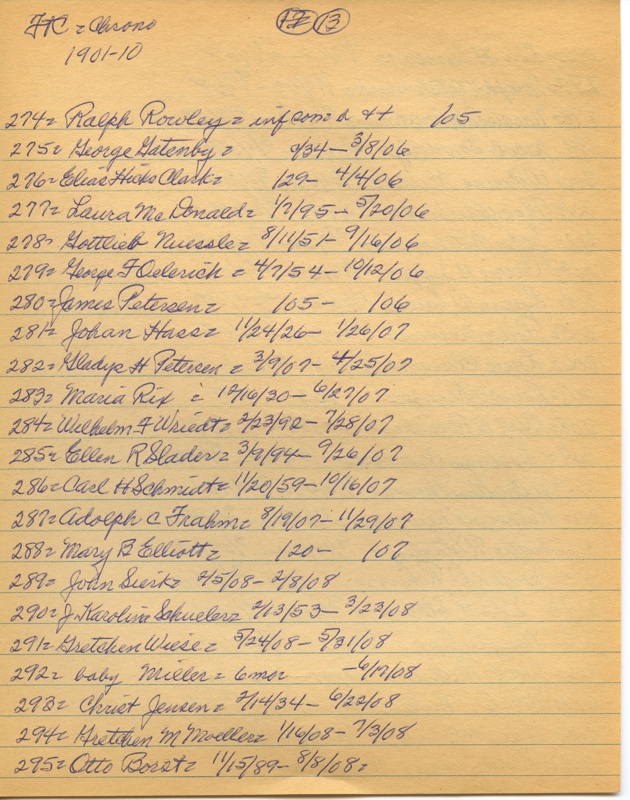 FC = Chrono 12 13
1901-10
274= Ralph Rowley = inf som & tt /05
275= George Gatenby = 9/34 - 3/8/06
276= Elias Hicks Clark = /29- 4/4/06
277= Laura McDonald = 1/7/95 - 5/20/06
278= Gottlieb Nuessle = 8/11/51 - 9/16/06
279= George F Oelerich = 4/7/54 - 10/12/06
280= James Petersen = /05 - /06
281= Johan Hass = 11/24/26 - 1/26/07
282= Gladys H Petersen = 3/9/07 - 4/25/07
283= Maria Rix = 12/16/30 - 6/27/07
284= Wilhelm F Wriedt = 2/23/92 - 7/28/07
285= Ellen R Slader = 3/9/94 - 9/26/07
286= Carl H Schmidt = 11/20/59 - 10/16/07
287= Adolph C Frahm = 8/19/07 - 11/29/07
288= Mary B Elliott = /20 - /07
289= John Sierk = 2/5/08 - 2/8/08
290= J. Karolina Schueler = 2/13/53 - 3/23/08
291= Gretchen Wiese = 5/24/08 - 5/31/08
292= baby Miller = 6 mos - 6/17/08
293= Christ Jensen = 2/14/34 - 6/22/08
294= Gretchen M Moeller = 1/16/08 - 7/3/08
295= Otto Borst = 11/15/89 - 8/8/08 =